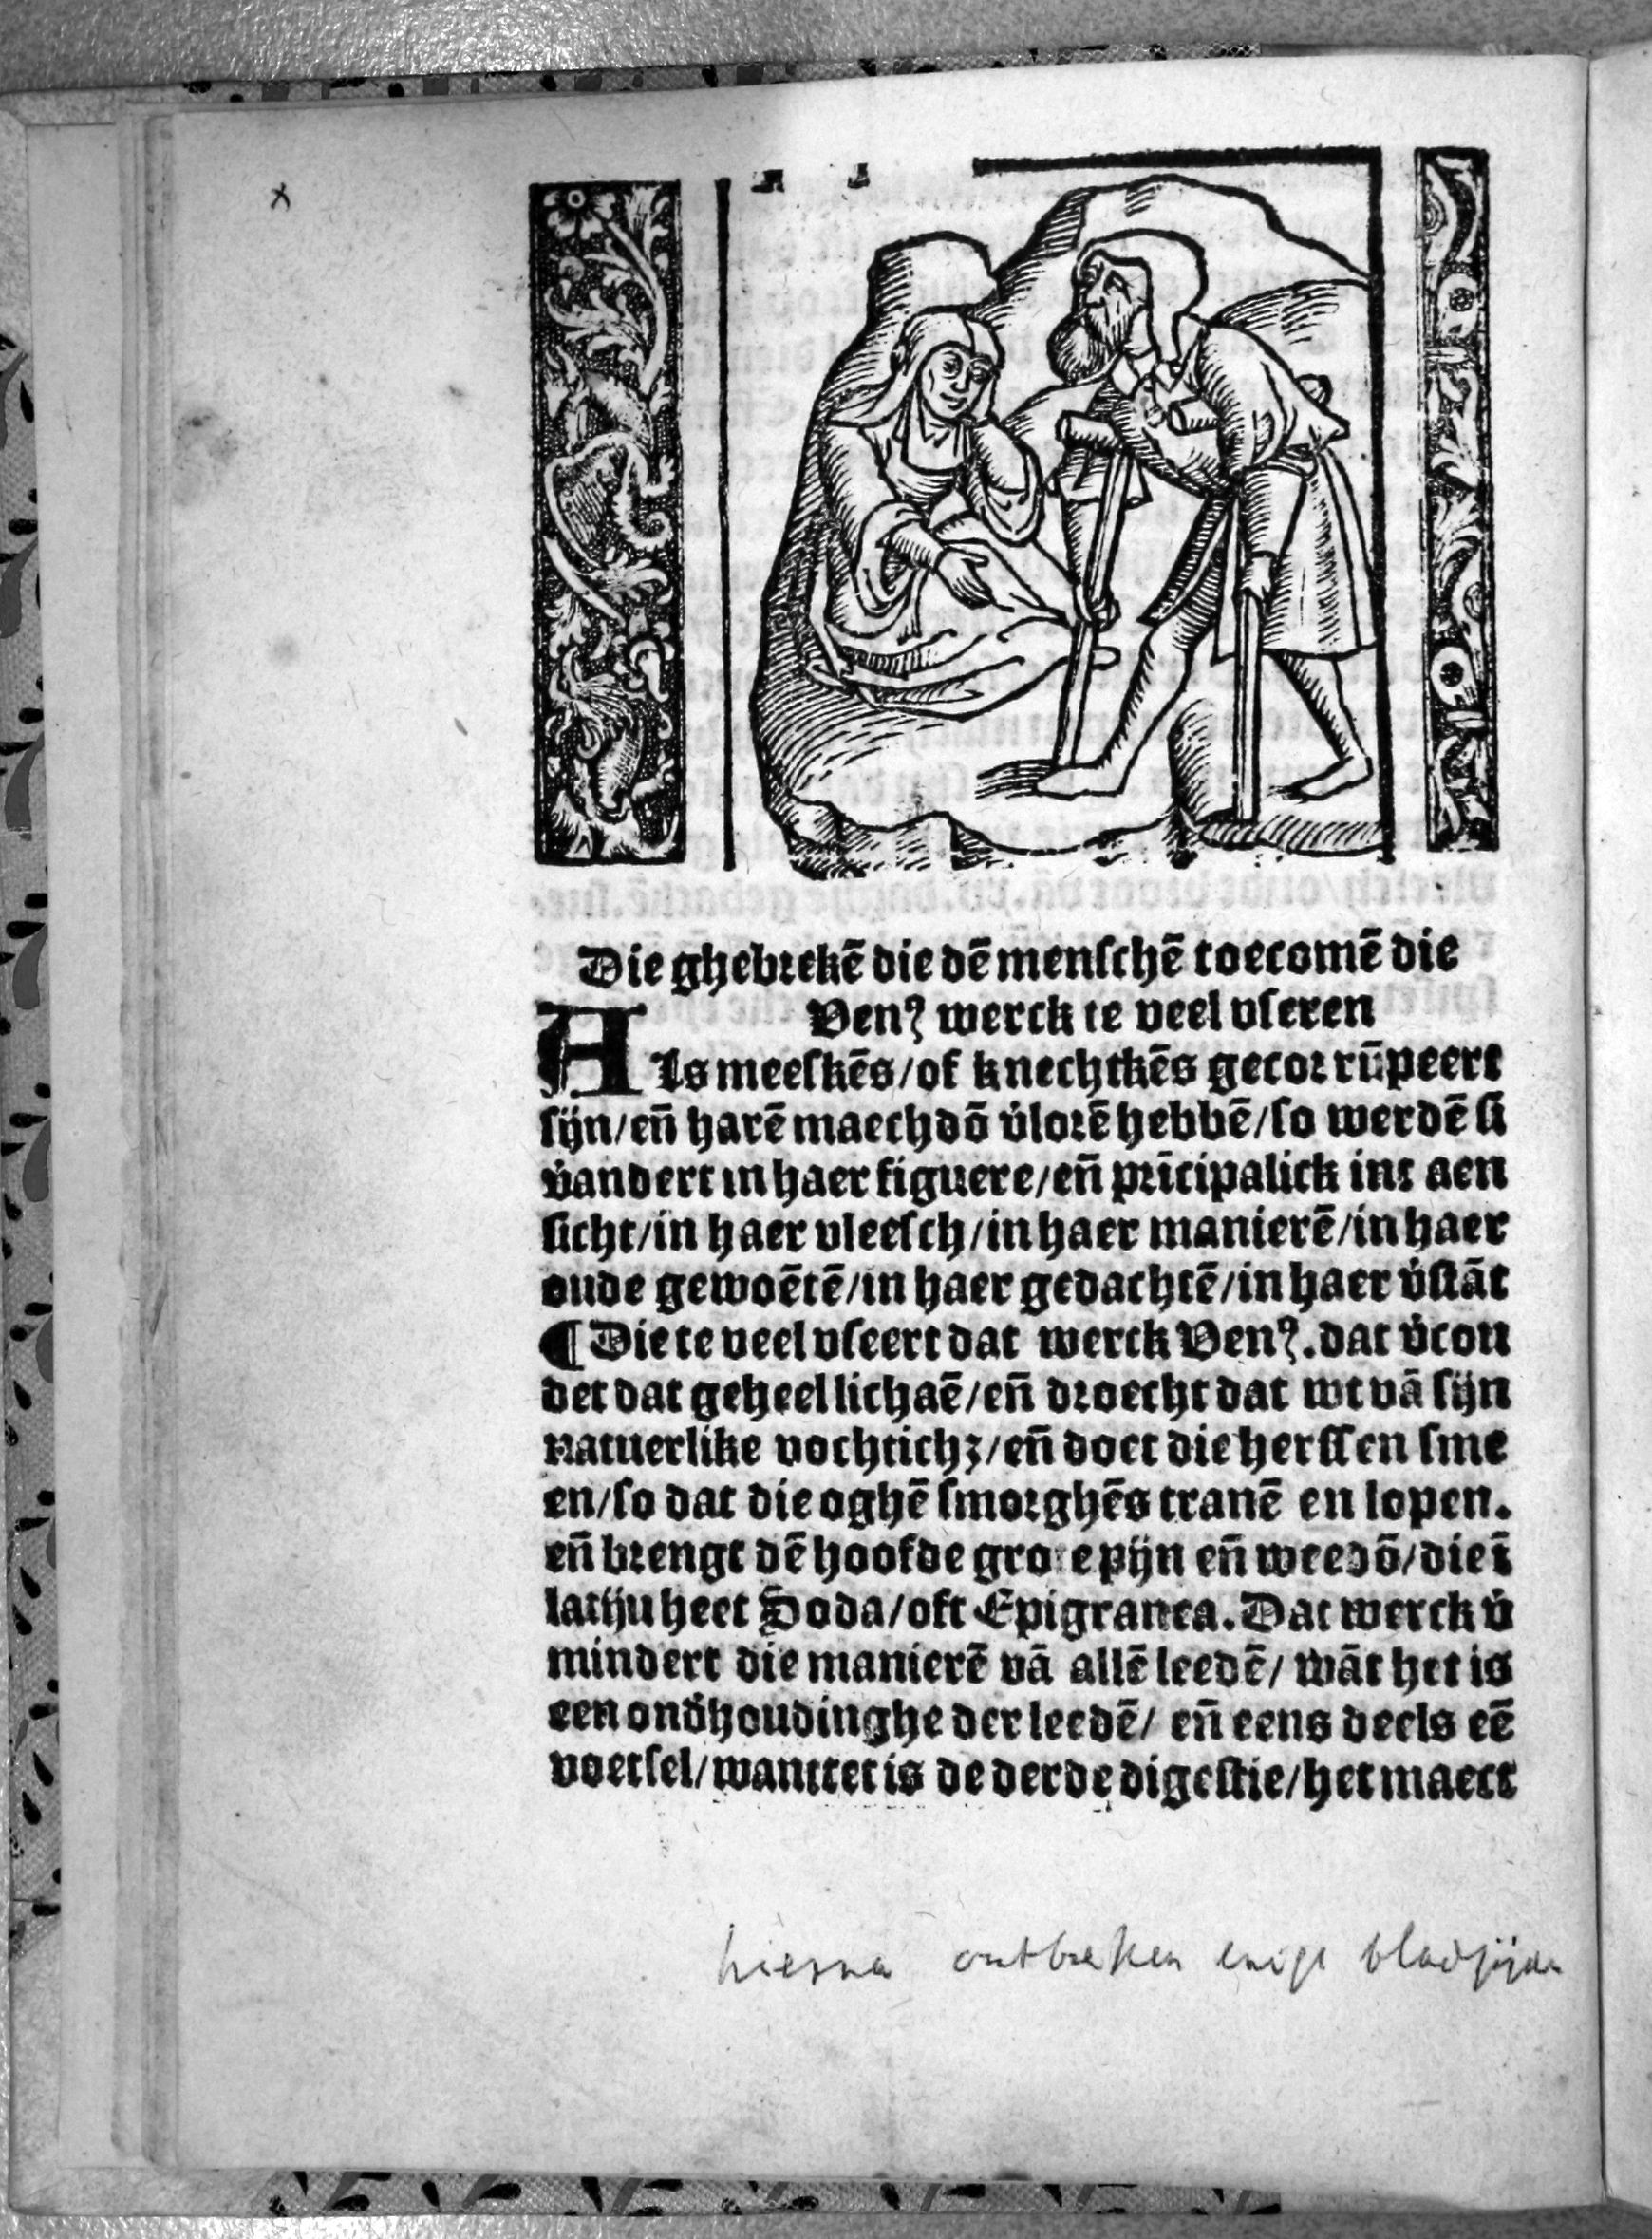 x
Die ghebrekē die dē menschē toecomē die
Venꝰ werck te veel vseren
Als meeskēs/of knechtkēs gecorrūpeert
sijn/eñ harē maechdō v̇lorē hebbē/so werdē si
v̇andert in haer figuere/eñ prīcipalick int aen
sicht/in haer vleesch/in haer manierē/in haer
oude gewoētē/in haer gedachtē/in haer v̇stāt
¶ Die te veel vseert dat werck Venꝰ.dat v̇cou
det dat geheel lichaē/eñ droecht dat wt vā sijn
natuerlike vochtichꝫ/eñ doet die herssen sme
en/so dat die oghē smorghēs tranē en lopen.
eñ brengt dē hoofde grote pijn eñ weedō/die ī
latiju heet Soda/oft Epigranea. Dat werck v̇
mindert die manierē vā allē leedē/ wāt het is
een ond̓houdinghe der leedē/ eñ eens deels eē
voetsel/wanttet is de derde digestie/het maect
hierna ontbreken enige bladzijden